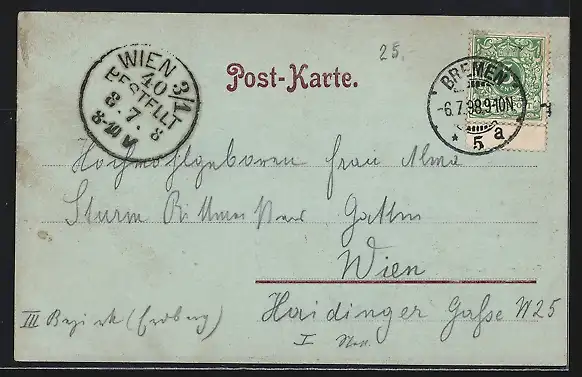 25.-
WIEN 3/1
40
BESTELLT
8. 7. 8
8-10 V
Post-Karte.
BREMEN
-6.7.98.9-10N
* 5 a
Hochwohlgeboren Frau Alma
Sturm Rittmeister Gattin
Wien
III Bezirk (Erdberg)
Haidinger Gasse N 25
I